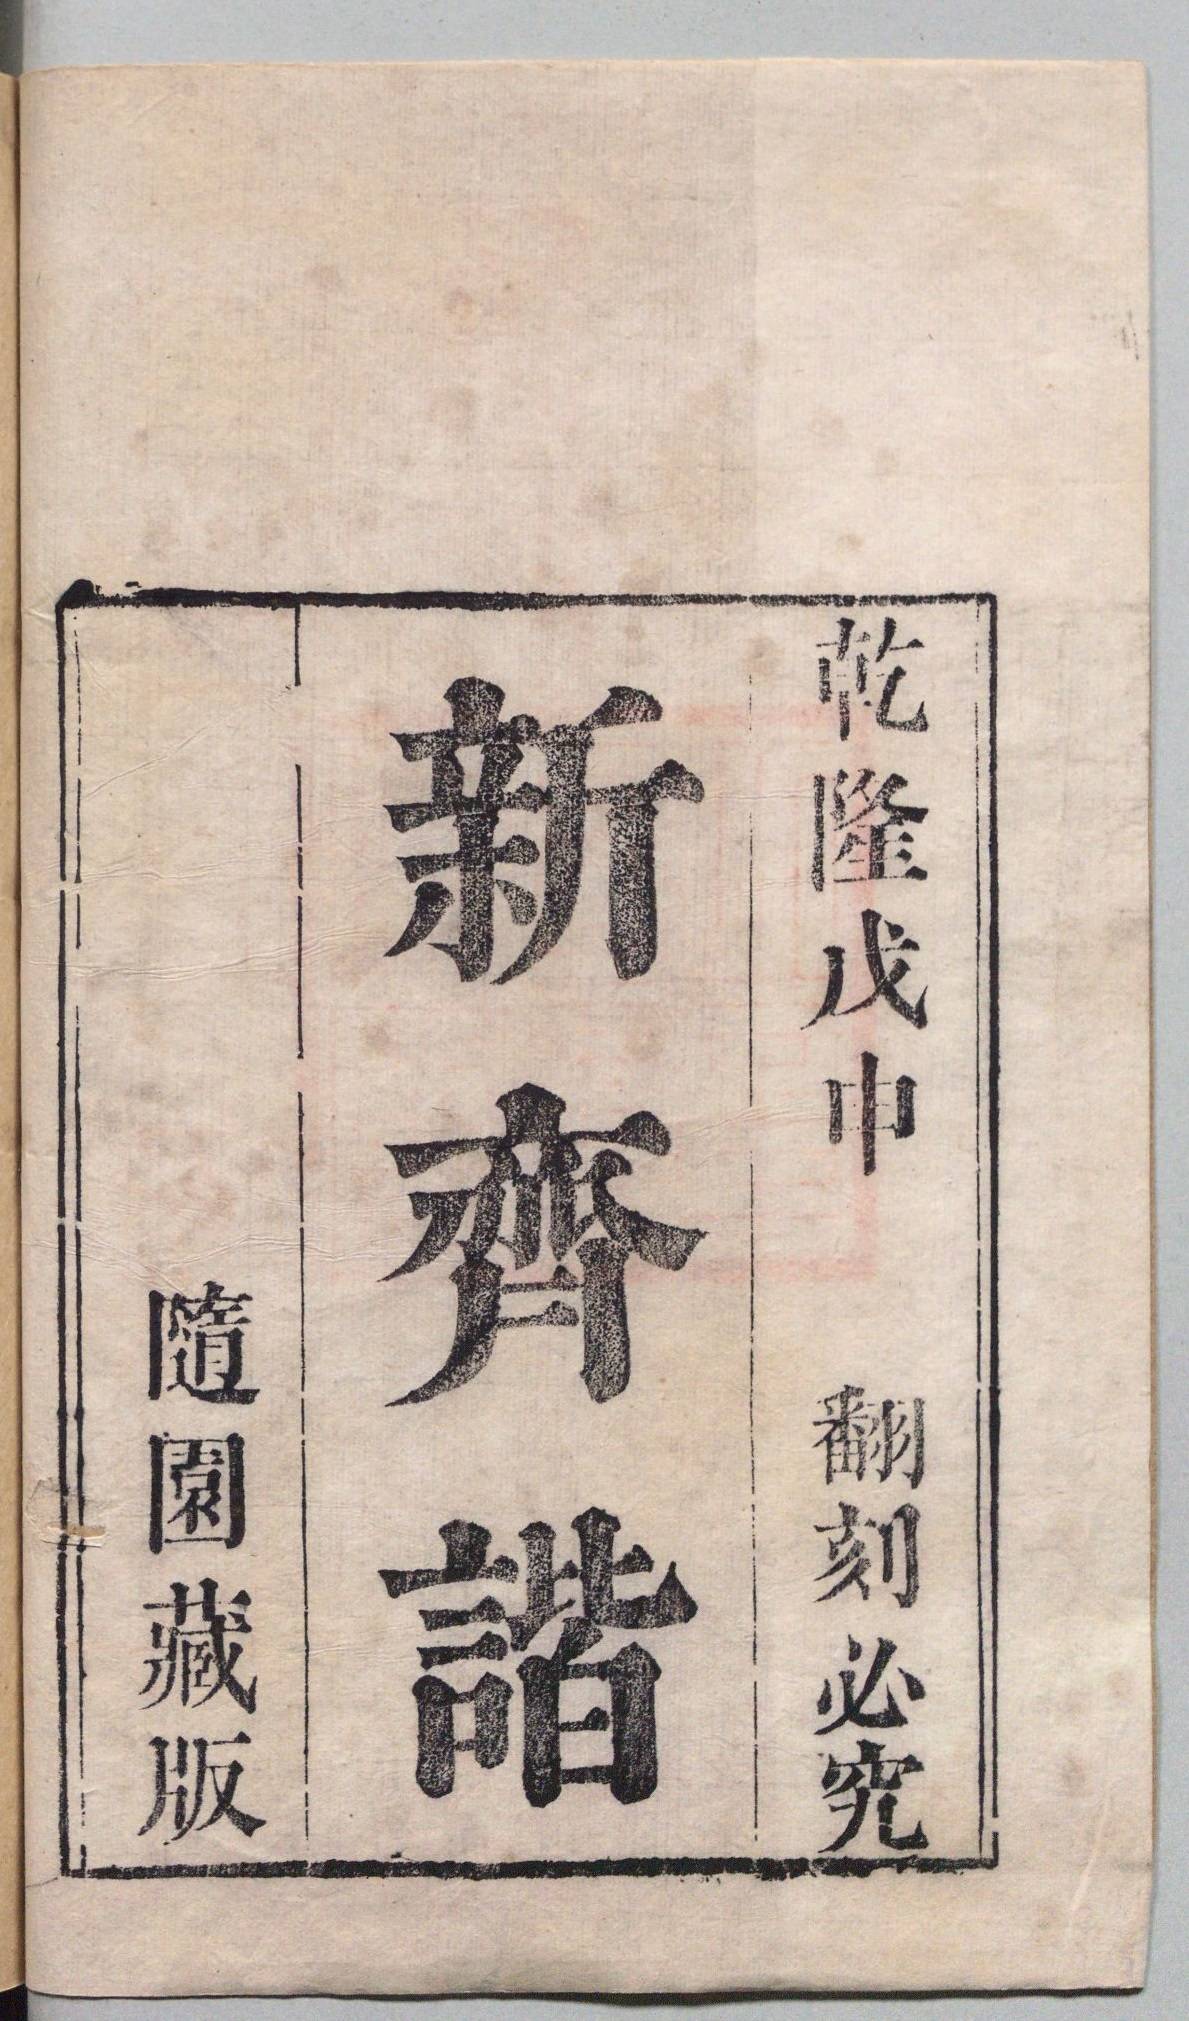 乾隆戊申 翻刻必究
新齊諧
隨園藏版